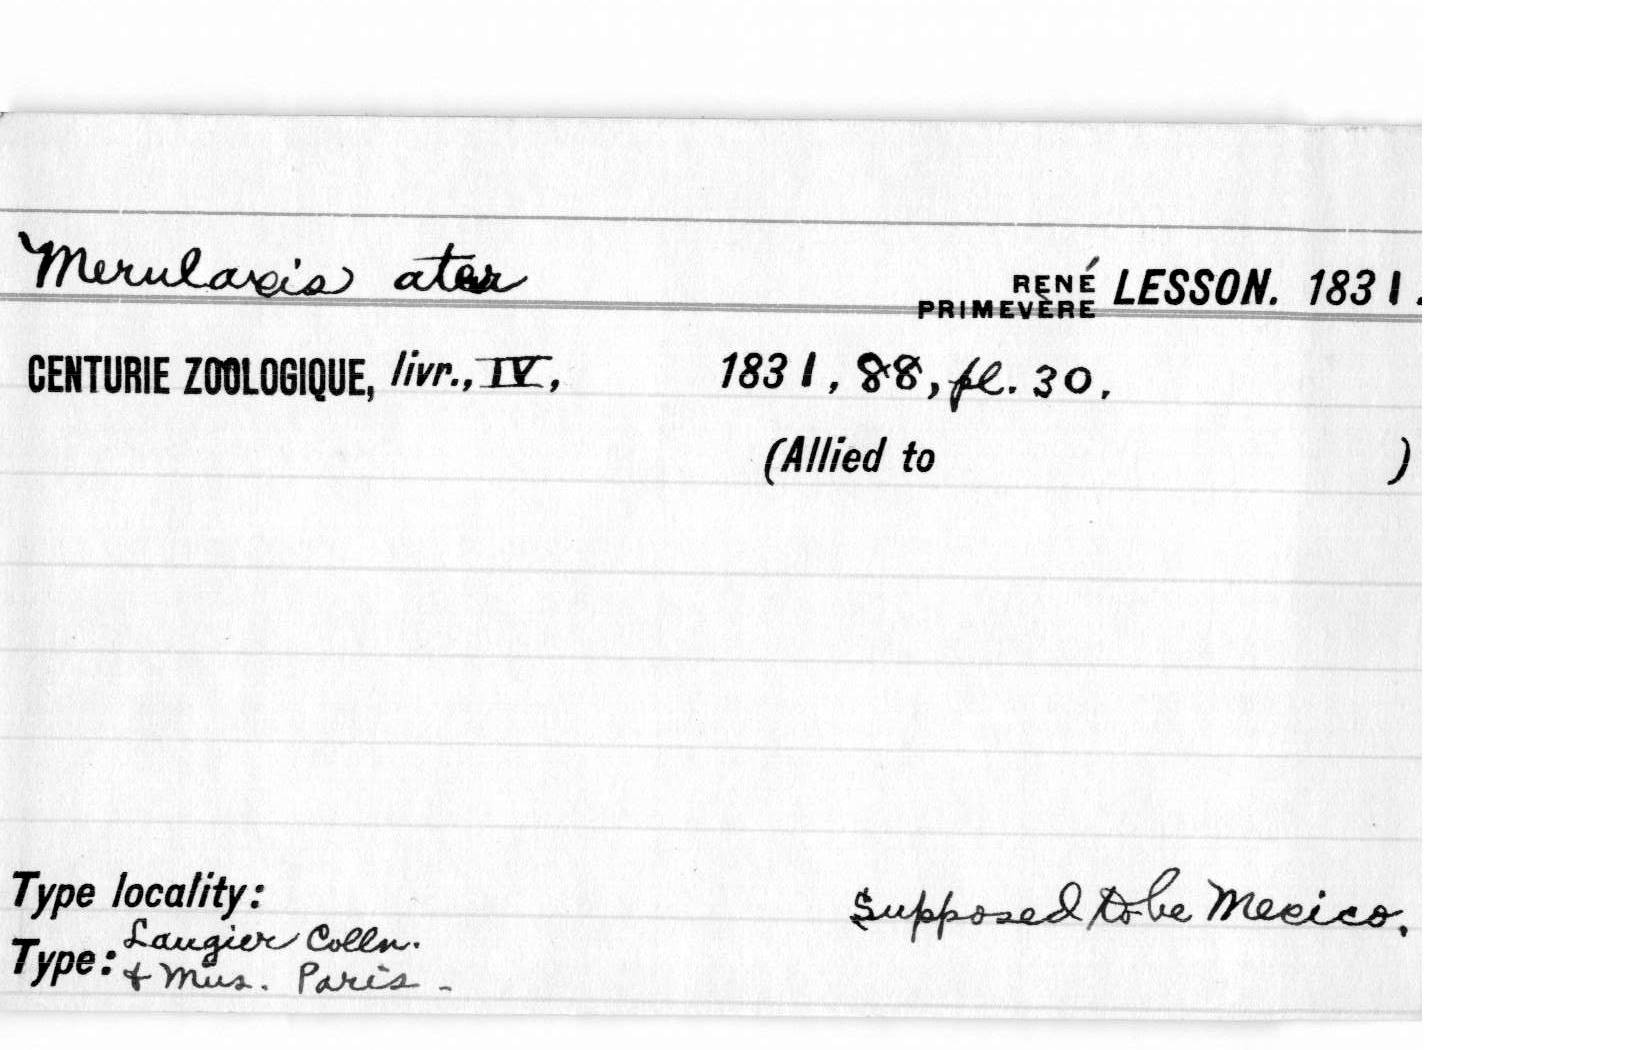 Merulaxis ater RENÉ PRIMEVÈRE LESSON. 1831.
CENTURIE ZOOLOGIQUE, livr., IV, 1831, 88, pl. 30.
(Allied to )
Type locality: Supposed to be Mexico.
Type: Laugier Colln.
& Mus. Paris -